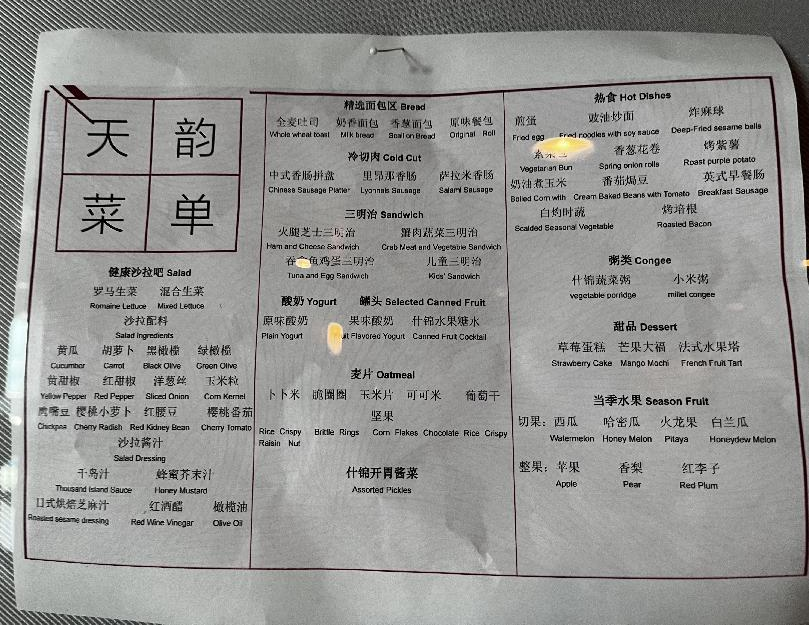 天 韵
菜 单
健康沙拉吧 Salad
罗马生菜 混合生菜
Romaine Lettuce Mixed Lettuce
沙拉配料
Salad Ingredients
黄瓜 胡萝卜 黑橄榄 绿橄榄
Cucumber Carrot Black Olive Green Olive
黄甜椒 红甜椒 洋葱丝 玉米粒
Yellow Pepper Red Pepper Sliced Onion Corn Kernel
鹰嘴豆 樱桃小萝卜 红腰豆 樱桃番茄
Chickpea Cherry Radish Red Kidney Bean Cherry Tomato
沙拉酱汁
Salad Dressing
千岛汁 蜂蜜芥末汁
Thousand Island Sauce Honey Mustard
日式烘焙芝麻汁 红酒醋 橄榄油
Roasted sesame dressing Red Wine Vinegar Olive Oil
精选面包区 Bread
全麦吐司 奶香面包 香葱面包 原味餐包
Whole wheat toast Milk bread Scallion Bread Original Roll
冷切肉 Cold Cut
中式香肠拼盘 里昂那香肠 萨拉米香肠
Chinese Sausage Platter Lyonnais Sausage Salami Sausage
三明治 Sandwich
火腿芝士三明治 蟹肉蔬菜三明治
Ham and Cheese Sandwich Crab Meat and Vegetable Sandwich
吞鱼鸡蛋三明治 儿童三明治
Tuna and Egg Sandwich Kids' Sandwich
酸奶 Yogurt 罐头 Selected Canned Fruit
原味酸奶 果味酸奶 什锦水果糖水
Plain Yogurt Flavored Yogurt Canned Fruit Cocktail
麦片 Oatmeal
卜卜米 脆圈圈 玉米片 可可米 葡萄干
坚果
Rice Crispy Brittle Rings Corn Flakes Chocolate Rice Crispy
Raisin Nut
什锦开胃酱菜
Assorted Pickles
热食 Hot Dishes
煎蛋 豉油炒面 炸麻球
Fried egg Fried noodles with soy sauce Deep-Fried sesame balls
香葱花卷 烤紫薯
Vegetarian Bun Spring onion rolls Roast purple potato
奶油煮玉米 番茄焗豆 英式早餐肠
Boiled Corn with Cream Baked Beans with Tomato Breakfast Sausage
白灼时蔬 烤培根
Scalded Seasonal Vegetable Roasted Bacon
粥类 Congee
什锦蔬菜粥 小米粥
vegetable porridge millet congee
甜品 Dessert
草莓蛋糕 芒果大福 法式水果塔
Strawberry Cake Mango Mochi French Fruit Tart
当季水果 Season Fruit
切果: 西瓜 哈密瓜 火龙果 白兰瓜
Watermelon Honey Melon Pitaya Honeydew Melon
整果: 苹果 香梨 红李子
Apple Pear Red Plum